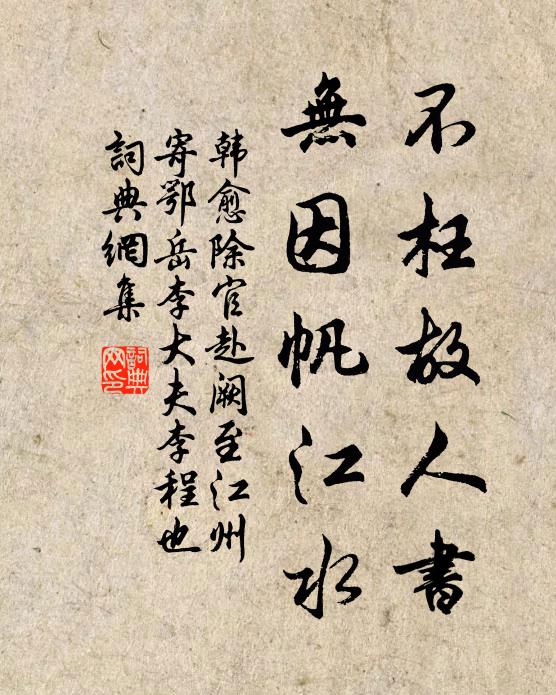 不枉故人書
無因帆江水
韩愈除官赴阙至江州
寄鄂岳李大夫李程也
詞典網集
詞典网印